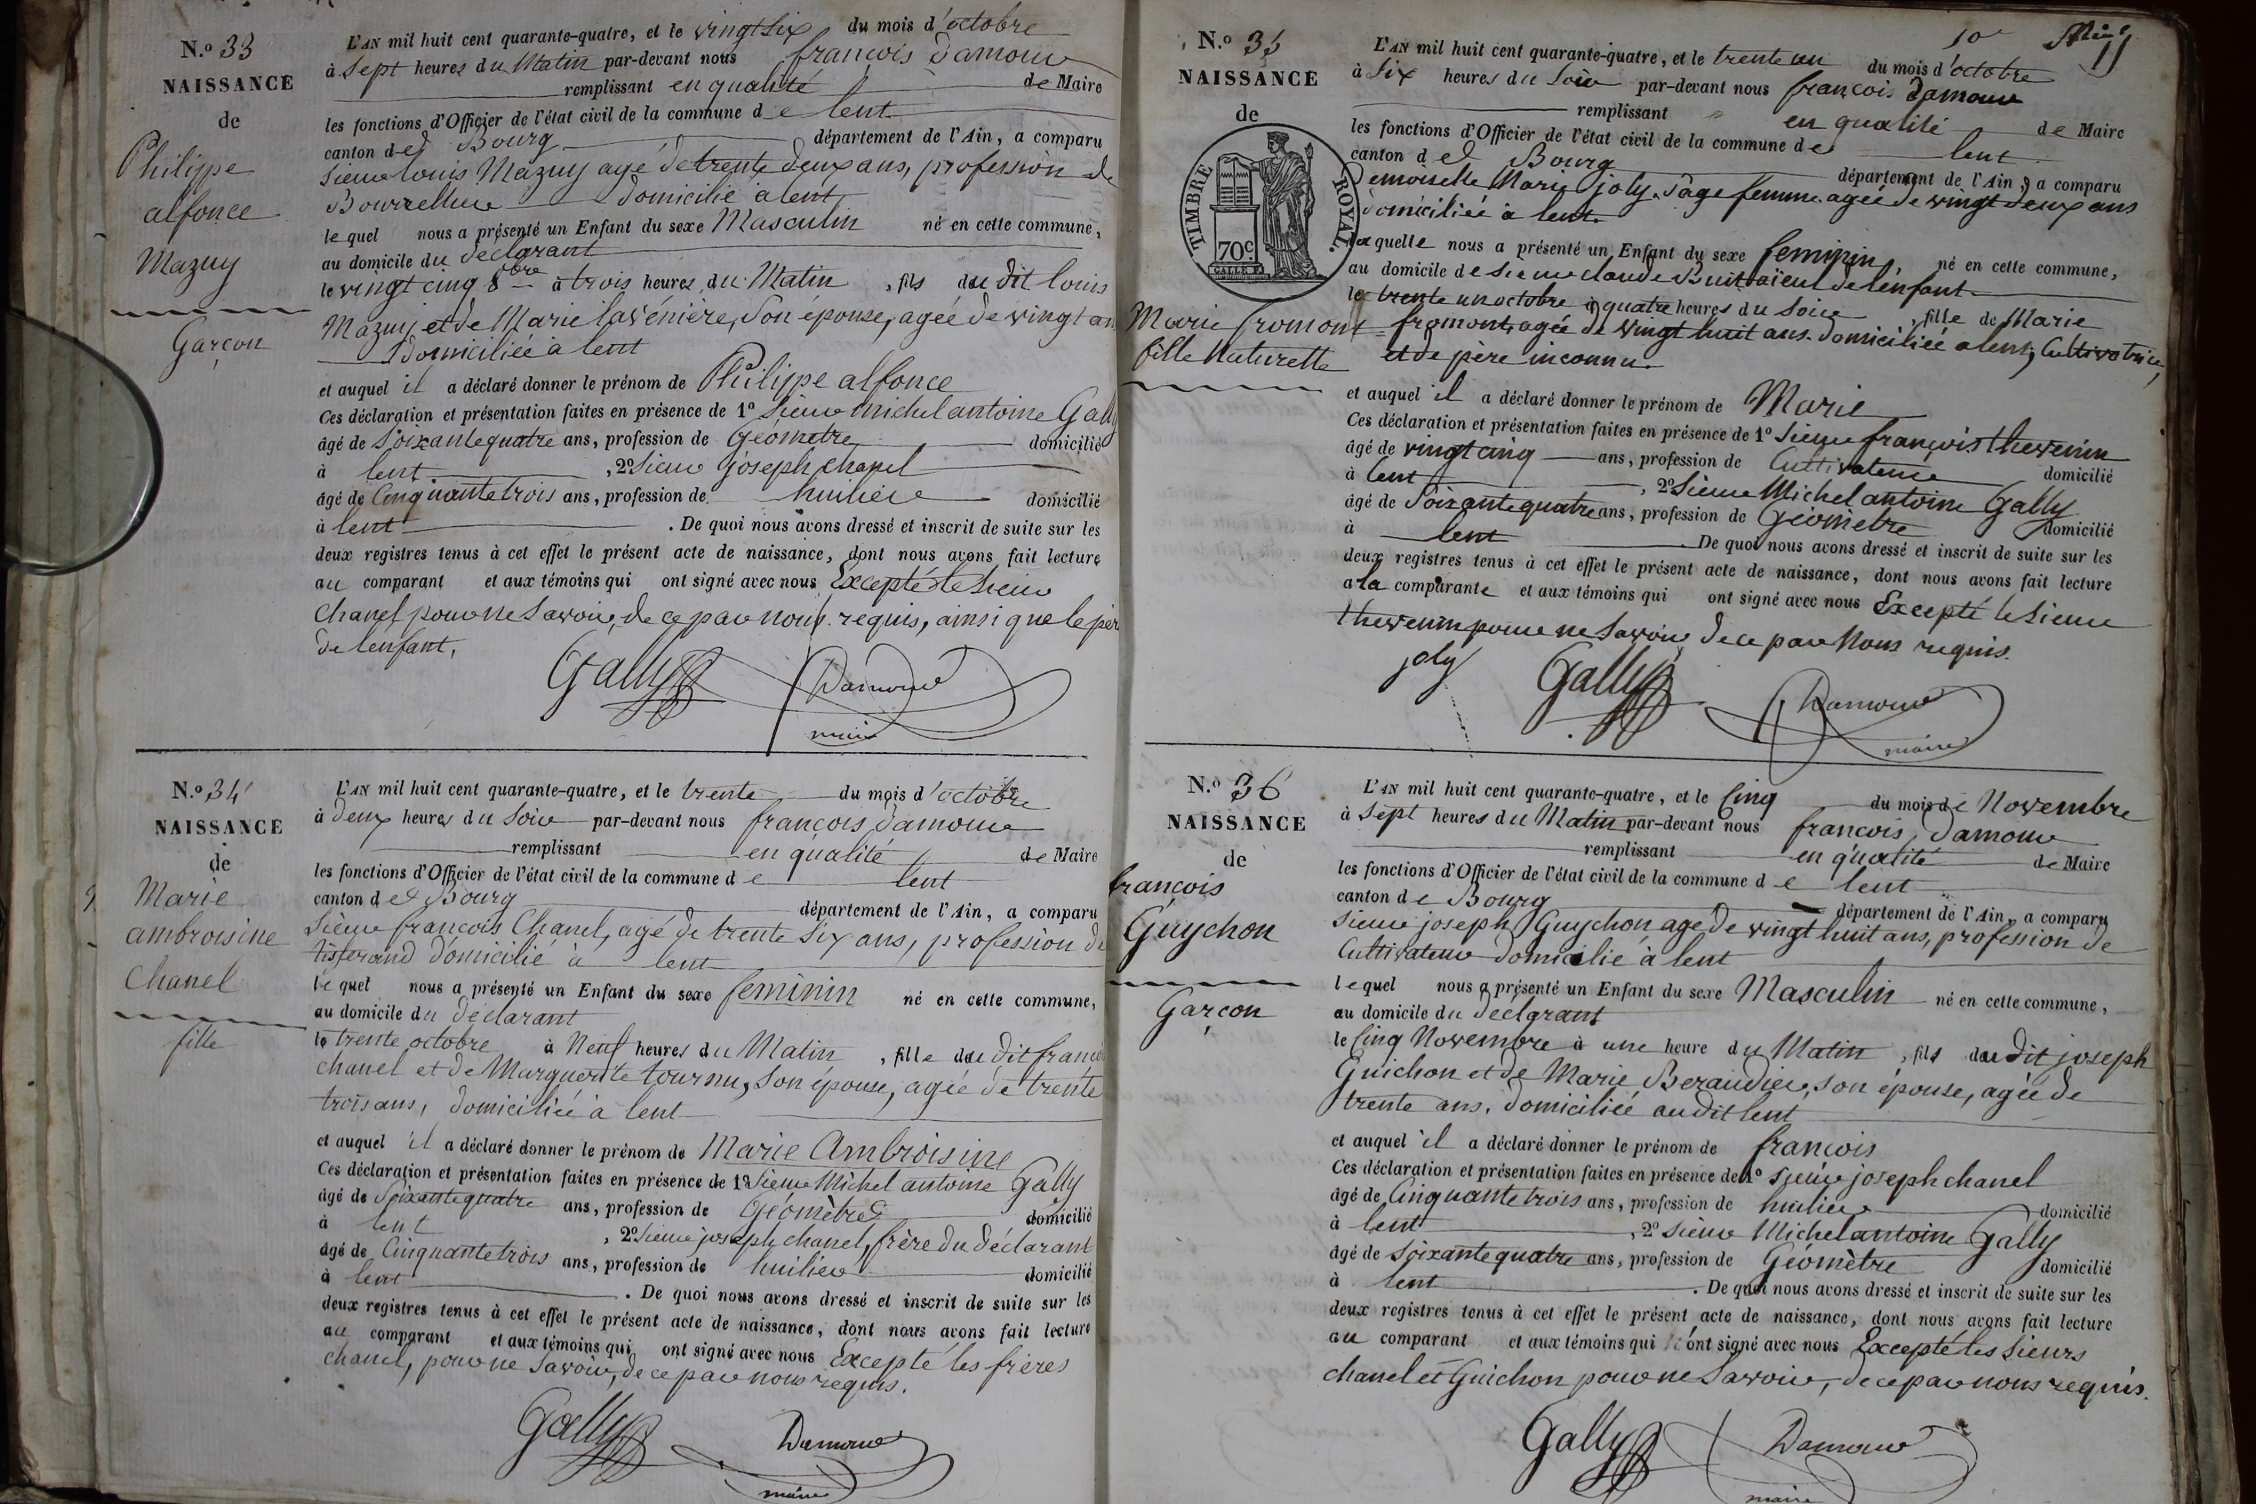 N.º 33
NAISSANCE
de
Philippe
alfonce
Mazuy
Garçon
L'AN mil huit cent quarante-quatre, et le vingt six du mois d'octobre
à sept heures du Matin par-devant nous françois Damour
remplissant en qualité de Maire
les fonctions d'Officier de l'état civil de la commune de lent
canton de Bourg département de l'Ain, a comparu
Sieur louis Mazuy agé de trente deux ans, profession de
Bourrellier domicilié à lent
lequel nous a présenté un Enfant du sexe Masculin né en cette commune,
au domicile du déclarant
le vingt cinq 8bre à trois heures du Matin, fils du dit louis
Mazuy et de Marie lavénière, Son épouse, agée de vingt
domiciliée à lent
et auquel il a déclaré donner le prénom de Philippe alfonce
Ces déclaration et présentation faites en présence de 1º Sieur michel antoine Gally
âgé de Soixante quatre ans, profession de Géomètre domicilié
à lent, 2º Sieur joseph chanel
âgé de Cinquante trois ans, profession de huilier domicilié
à lent. De quoi nous avons dressé et inscrit de suite sur les
deux registres tenus à cet effet le présent acte de naissance, dont nous avons fait lecture
au comparant et aux témoins qui ont signé avec nous Excepté le Sieur
chanel pour ne Savoir, de ce par nous requis, ainsi que le père
de l'enfant.
Gally Damour
maire
N.º 34
NAISSANCE
de
Marie
ambroisine
Chanel
fille
L'AN mil huit cent quarante-quatre, et le trente du mois d'octobre
à deux heures du Soir par-devant nous françois Damour
remplissant en qualité de Maire
les fonctions d'Officier de l'état civil de la commune de lent
canton de Bourg département de l'Ain, a comparu
Sieur françois Chanel, agé de trente Six ans, profession de
tisserand domicilié à lent
lequel nous a présenté un Enfant du sexe feminin né en cette commune,
au domicile du déclarant
le trente octobre à Neuf heures du Matin, fille du dit françois
chanel et de Marguerite tournu, Son épouse, agée de trente
trois ans, domiciliée à lent
et auquel il a déclaré donner le prénom de Marie Ambroisine
Ces déclaration et présentation faites en présence de 1º Sieur Michel antoine Gally
âgé de Soixante quatre ans, profession de Géomètre domicilié
à lent, 2º Sieur joseph chanel, frère du déclarant
âgé de Cinquante trois ans, profession de huilier domicilié
à lent. De quoi nous avons dressé et inscrit de suite sur les
deux registres tenus à cet effet le présent acte de naissance, dont nous avons fait lecture
au comparant et aux témoins qui ont signé avec nous Excepté les frères
chanel, pour ne Savoir, de ce par nous requis.
Gally Damour
maire
10
11
N.º 35
NAISSANCE
de
TIMBRE ROYAL.
70c
Marie fromont
fille Naturelle
L'AN mil huit cent quarante-quatre, et le trente un du mois d'octobre
à Six heures du Soir par-devant nous françois Damour
remplissant en qualité de Maire
les fonctions d'Officier de l'état civil de la commune de lent
canton de Bourg département de l'Ain, a comparu
Demoiselle Marie joly, Sage femme agée de vingt deux ans
domiciliée à lent.
laquelle nous a présenté un Enfant du sexe feminin, né en cette commune,
au domicile de Sieur claude Buit aïeul de l'enfant
le trente un octobre à quatre heures du Soir, fille de Marie
fromont, agée de vingt huit ans. domiciliée a lent, Cultivatrice,
et de père inconnu.
et auquel il a déclaré donner le prénom de Marie
Ces déclaration et présentation faites en présence de 1º Sieur françois thevenin
âgé de vingt cinq ans, profession de Cultivateur domicilié
à lent, 2º Sieur Michel antoine Gally
âgé de Soixante quatre ans, profession de Géomètre domicilié
à lent De quoi nous avons dressé et inscrit de suite sur les
deux registres tenus à cet effet le présent acte de naissance, dont nous avons fait lecture
a la comparante et aux témoins qui ont signé avec nous Excepté le Sieur
thevenin pour ne Savoir, de ce par Nous requis.
joly Gally Damour
maire
N.º 36
NAISSANCE
de
francois
Guychon
Garçon
L'AN mil huit cent quarante-quatre, et le Cinq du mois de Novembre
à Sept heures du Matin par-devant nous françois Damour
remplissant en qualité de Maire
les fonctions d'Officier de l'état civil de la commune de lent
canton de Bourg département de l'Ain, a comparu
Sieur joseph Guychon agé de vingt huit ans, profession de
Cultivateur domicilié à lent
lequel nous a présenté un Enfant du sexe Masculin né en cette commune,
au domicile du déclarant
le Cinq Novembre à une heure du Matin, fils du dit joseph
Guichon et de Marie Beraudier, son épouse, agée de
trente ans, domiciliée au dit lent
et auquel il a déclaré donner le prénom de francois
Ces déclaration et présentation faites en présence de 1º Sieur joseph chanel
âgé de Cinquante trois ans, profession de huilier domicilié
à lent, 2º Sieur Michel antoine Gally
âgé de Soixante quatre ans, profession de Géomètre domicilié
à lent. De quoi nous avons dressé et inscrit de suite sur les
deux registres tenus à cet effet le présent acte de naissance, dont nous avons fait lecture
au comparant et aux témoins qui ont signé avec nous Excepté les Sieurs
chanel et Guichon pour ne Savoir, de ce par nous requis.
Gally Damour
maire